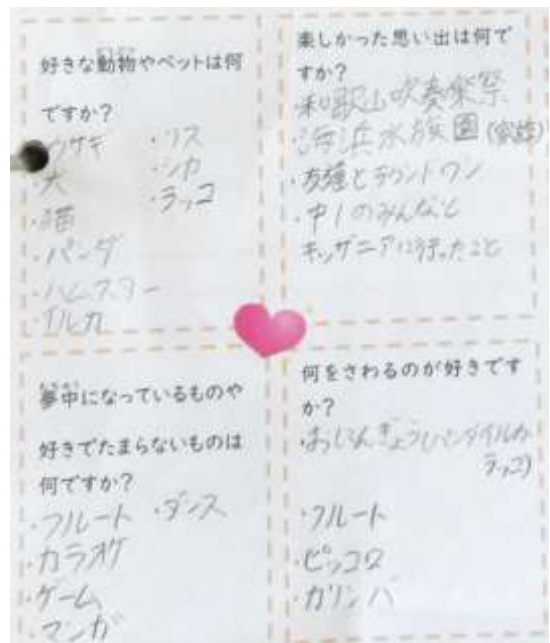 好きな動物やペットは何
ですか?
ウサギ ・リス
・犬 ・シカ
・猫 ・ラッコ
・パンダ
・ハムスター
・イルカ
楽しかった思い出は何で
すか?
・和歌山吹奏楽祭
・海浜水族園(家族)
・友達とラウントワン
・中1のみんなと
キッザニアに行ったこと
夢中になっているものや
好きでたまらないものは
何ですか?
・フルート ・ダンス
・カラオケ
・ゲーム
・マンガ
何をさわるのが好きです
か?
・おにんぎょう(パンダイルカ
ラッコ)
・フルート
・ピッコロ
・カリンバ